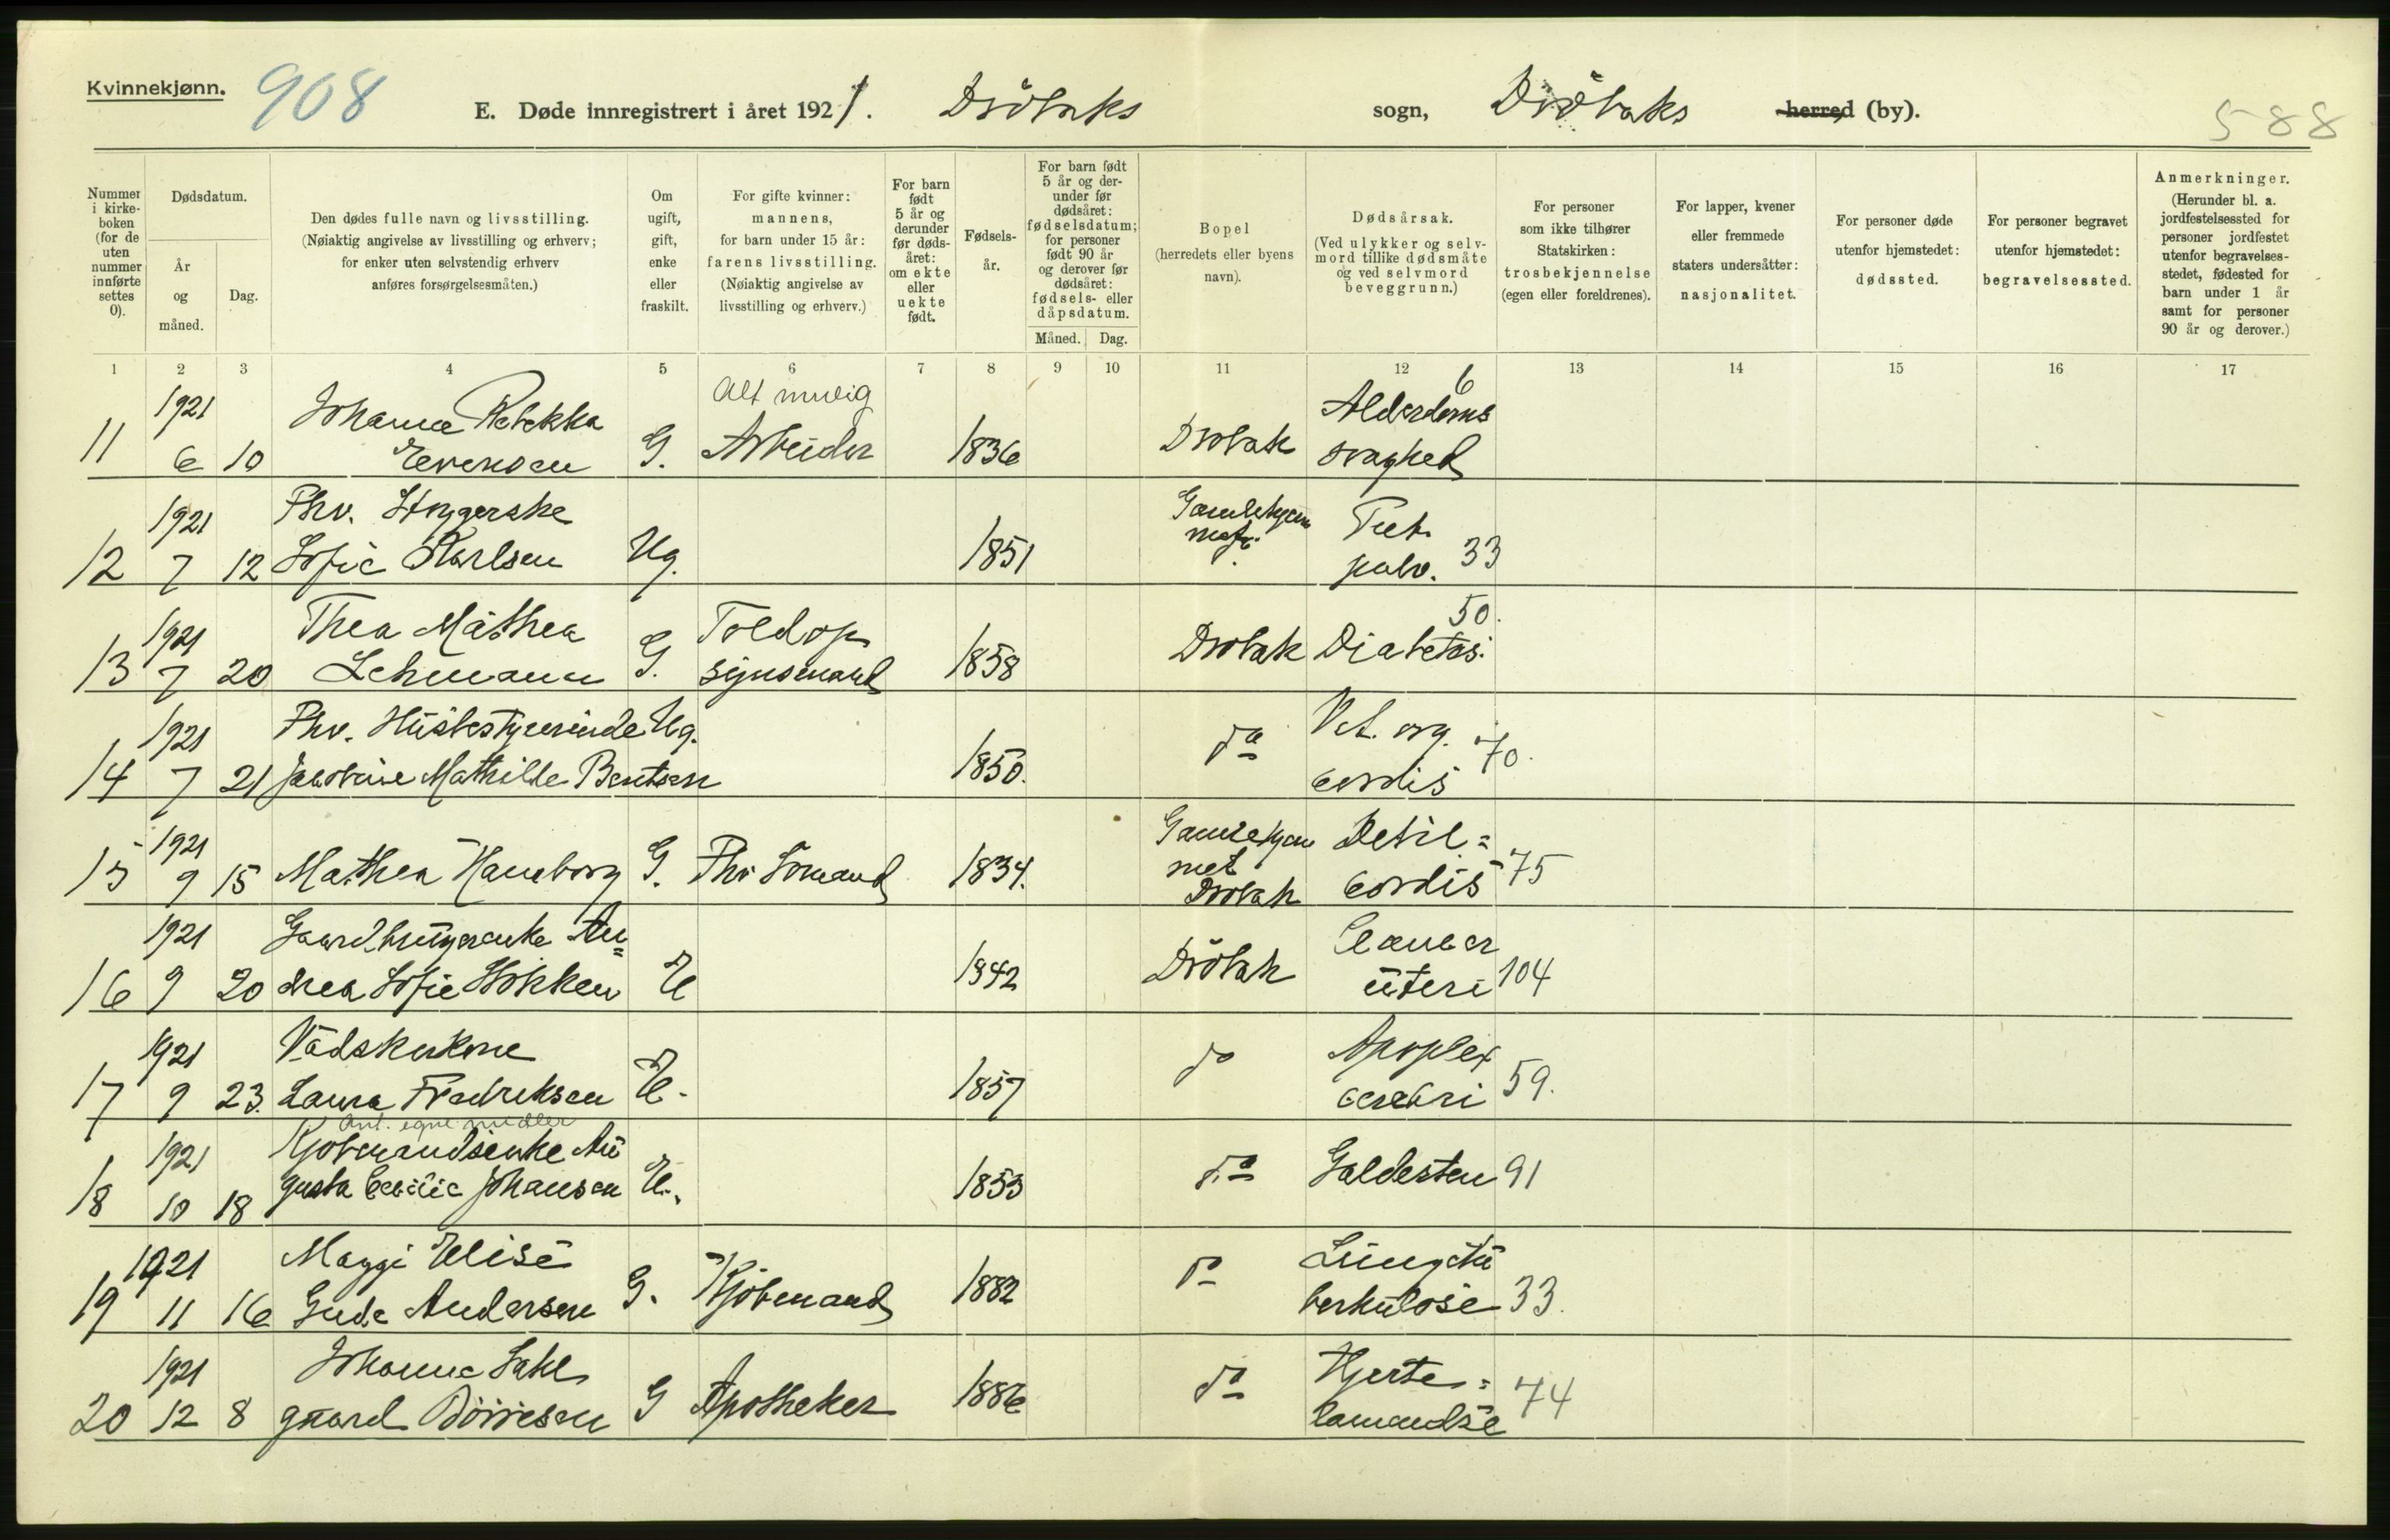 Kvinnekjønn.
908
E. Døde innregistrert i året 1921.
Drøbaks
sogn,
Drøbaks
herred (by).
588
Nummer i kirkeboken (for de uten nummer innførte settes 0).
Dødsdatum.
År og måned.
Dag.
Den dødes fulle navn og livsstilling.
(Nøiaktig angivelse av livsstilling og erhverv;
for enker uten selvstendig erhverv
anføres forsørgelsesmåten.)
Om ugift, gift, enke eller fraskilt.
For gifte kvinner:
mannens,
for barn under 15 år:
farens livsstilling.
(Nøiaktig angivelse av
livsstilling og erhverv.)
For barn født 5 år og derunder før dødsåret: om ekte eller uekte født.
Fødselsår.
For barn født 5 år og derunder før dødsåret: fødselsdatum; for personer født 90 år og derover før dødsåret: fødsels- eller dåpsdatum.
Måned.
Dag.
Bopel
(herredets eller byens
navn).
Dødsårsak.
(Ved ulykker og selvmord tillike dødsmåte og ved selvmord beveggrunn.)
For personer
som ikke tilhører
Statskirken:
trosbekjennelse
(egen eller foreldrenes).
For lapper, kvener
eller fremmede
staters undersåtter:
nasjonalitet.
For personer døde
utenfor hjemstedet:
dødssted.
For personer begravet
utenfor hjemstedet:
begravelsessted.
Anmerkninger.
(Herunder bl. a.
jordfestelsessted for
personer jordfestet
utenfor begravelses-
stedet, fødested for
barn under 1 år
samt for personer
90 år og derover.)
1 2 3 4 5 6 7 8 9 10 11 12 13 14 15 16 17
1921 Johanne Rebekka Alt mulig Alderdoms 6
11 6 10 Evensen G. Arbeider 1836 Drøbak svaghed
1921 Fhv. Gamlehjem Tub.
12 7 12 Sofie Karlsen Ug. 1851 met. pulv. 33
1921 Thea Mathea Toldop 50.
13 7 20 Lehmann G. synsmand 1858 Drøbak Diabetes.
1921 Fhv. Husbestyrerinde Ug. Vit. org.
14 7 21 Jakobine Mathilde Bentsen 1850. do cordis 70.
1921 Gamlehjem Debil=
15 9 15 Mathea Hamborg G. Fhv Sømand 1834. met Drøbak cordis 75
1921 Gaardbrugerenke An= Cancer
16 9 20 drea Sofie Hokken E 1842 Drøbak uteri 104
1921 Vadskerkone Apoplex
17 9 23. Laura Fredriksen E. 1857 do cerebri 59.
Ant. egne midler
1921 Kjøbmandsenke Au
18 10 18 gusta Cecilie Johansen E. 1853 do Galdesten 91
1921 Maggi Elise Lungetu
19 11 16 Gude Andersen G. Kjøbmand 1882 do berkulose 33.
1921 Johanne Sakl Hjerte=
20 12 8 gaard Børresen G Apotheker 1886 do lammelse 74